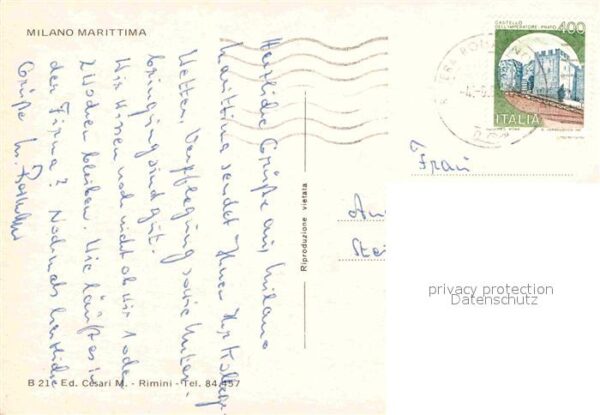 MILANO MARITTIMA
Herzliche Grüße aus Milano
Marittima sendet Ihnen Ihr Kollege
Wetter, Verpflegung sowie Unter-
bringung sind gut.
Wir wissen noch nicht ob wir 1 oder
2 Wochen bleiben. Wie läuft es in
der Firma? Nochmals herzliche
Grüße
B 21 - Ed. Cesari M. - Rimini - Tel. 84.457
Riproduzione vietata
CASTELLO
DELL'IMPERATORE · PRATO
400
ITALIA
Frau
privacy protection
Datenschutz